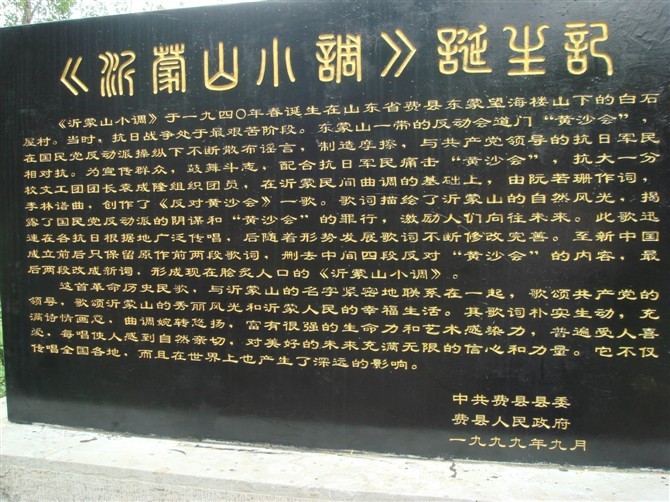 《沂蒙山小調》誕生記
《沂蒙山小调》于一九四〇年春诞生在山东省费县东蒙望海楼山下的白石
屋村。当时，抗日战争处于最艰苦阶段。东蒙山一带的反动会道门“黄沙会”，
在国民党反动派操纵下不断散布谣言，制造摩擦，与共产党领导的抗日军民
相对抗。为宣传群众，鼓舞斗志，配合抗日军民痛击“黄沙会”，抗大一分
校文工团团长袁成隆组织团员，在沂蒙民间曲调的基础上，由阮若珊作词，
李林谱曲，创作了《反对黄沙会》一歌。歌词描绘了沂蒙山的自然风光，揭
露了国民党反动派的阴谋和“黄沙会”的罪行，激励人们向往未来。此歌迅
速在各抗日根据地广泛传唱，后随着形势发展歌词不断修改完善。至新中国
成立前后只保留原作前两段歌词，删去中间四段反对“黄沙会”的内容，最
后两段改成新词，形成现在脍炙人口的《沂蒙山小调》。
这首革命历史民歌，与沂蒙山的名字紧密地联系在一起，歌颂共产党的
领导，歌颂沂蒙山的秀丽风光和沂蒙人民的幸福生活。其歌词朴实生动，充
满诗情画意，曲调婉转悠扬，富有很强的生命力和艺术感染力，普遍受人喜
爱，每唱使人感到自然亲切，对美好的未来充满无限的信心和力量。它不仅
传唱全国各地，而且在世界上也产生了深远的影响。
中共费县县委
费县人民政府
一九九九年九月